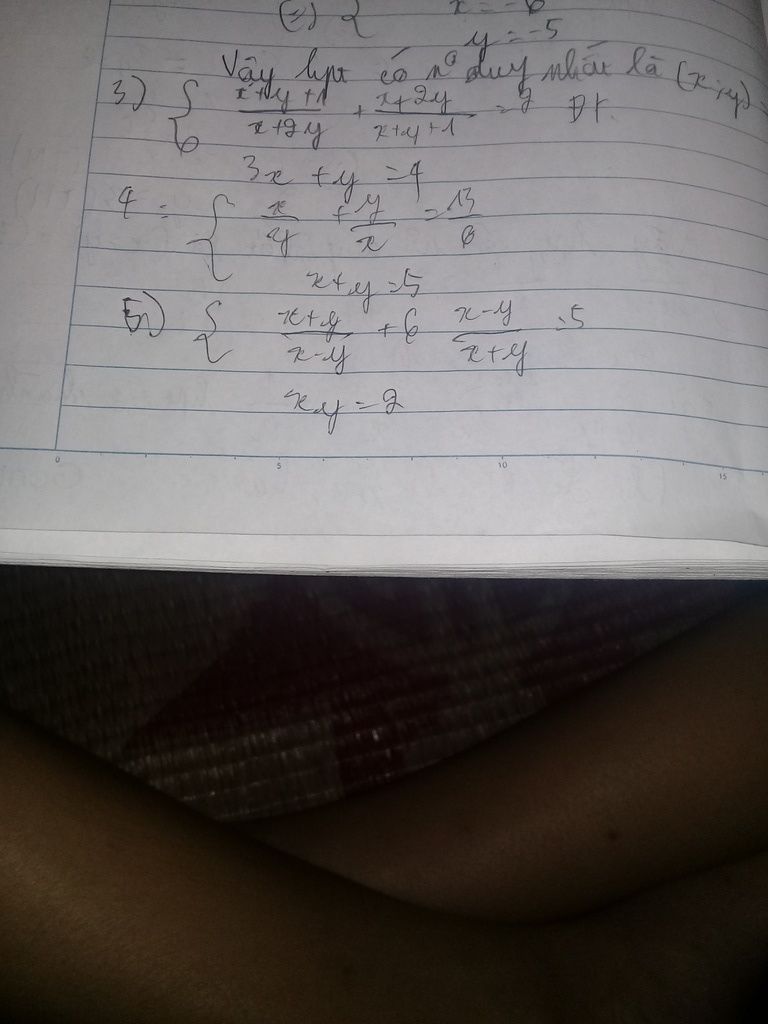 (=) { x = -6
y = -5
Vậy hpt có nº duy nhất là (x; y) =
3) { (x+y+1)/(x+2y) + (x+2y)/(x+y+1) = 2 Đk
3x + y = 4
4 = { x/y + y/x = 13/6
x+y = 5
5) { (x+y)/(x-y) + 6 (x-y)/(x+y) = 5
xy = 2
0 5 10 15